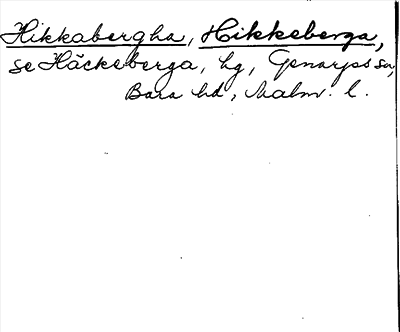 Hikkabergha, Hikkeberga,
se Häckeberga, hg, Genarps sn,
Bara hd, Malm. l.